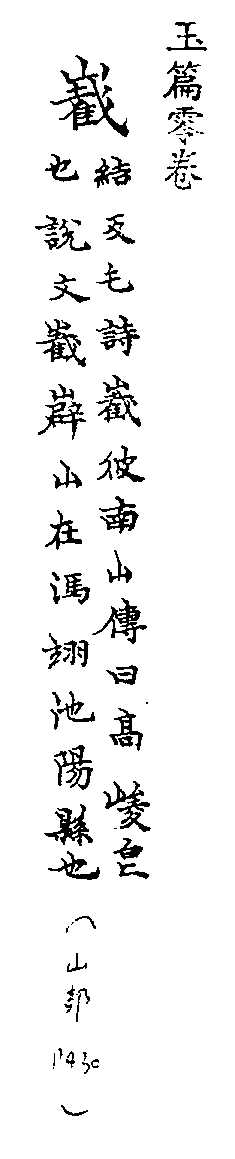 玉篇零卷
巀
結反毛詩巀彼南山傳曰高峻皃
也說文巀嶭山在馮翊池陽縣也（山部 P430）